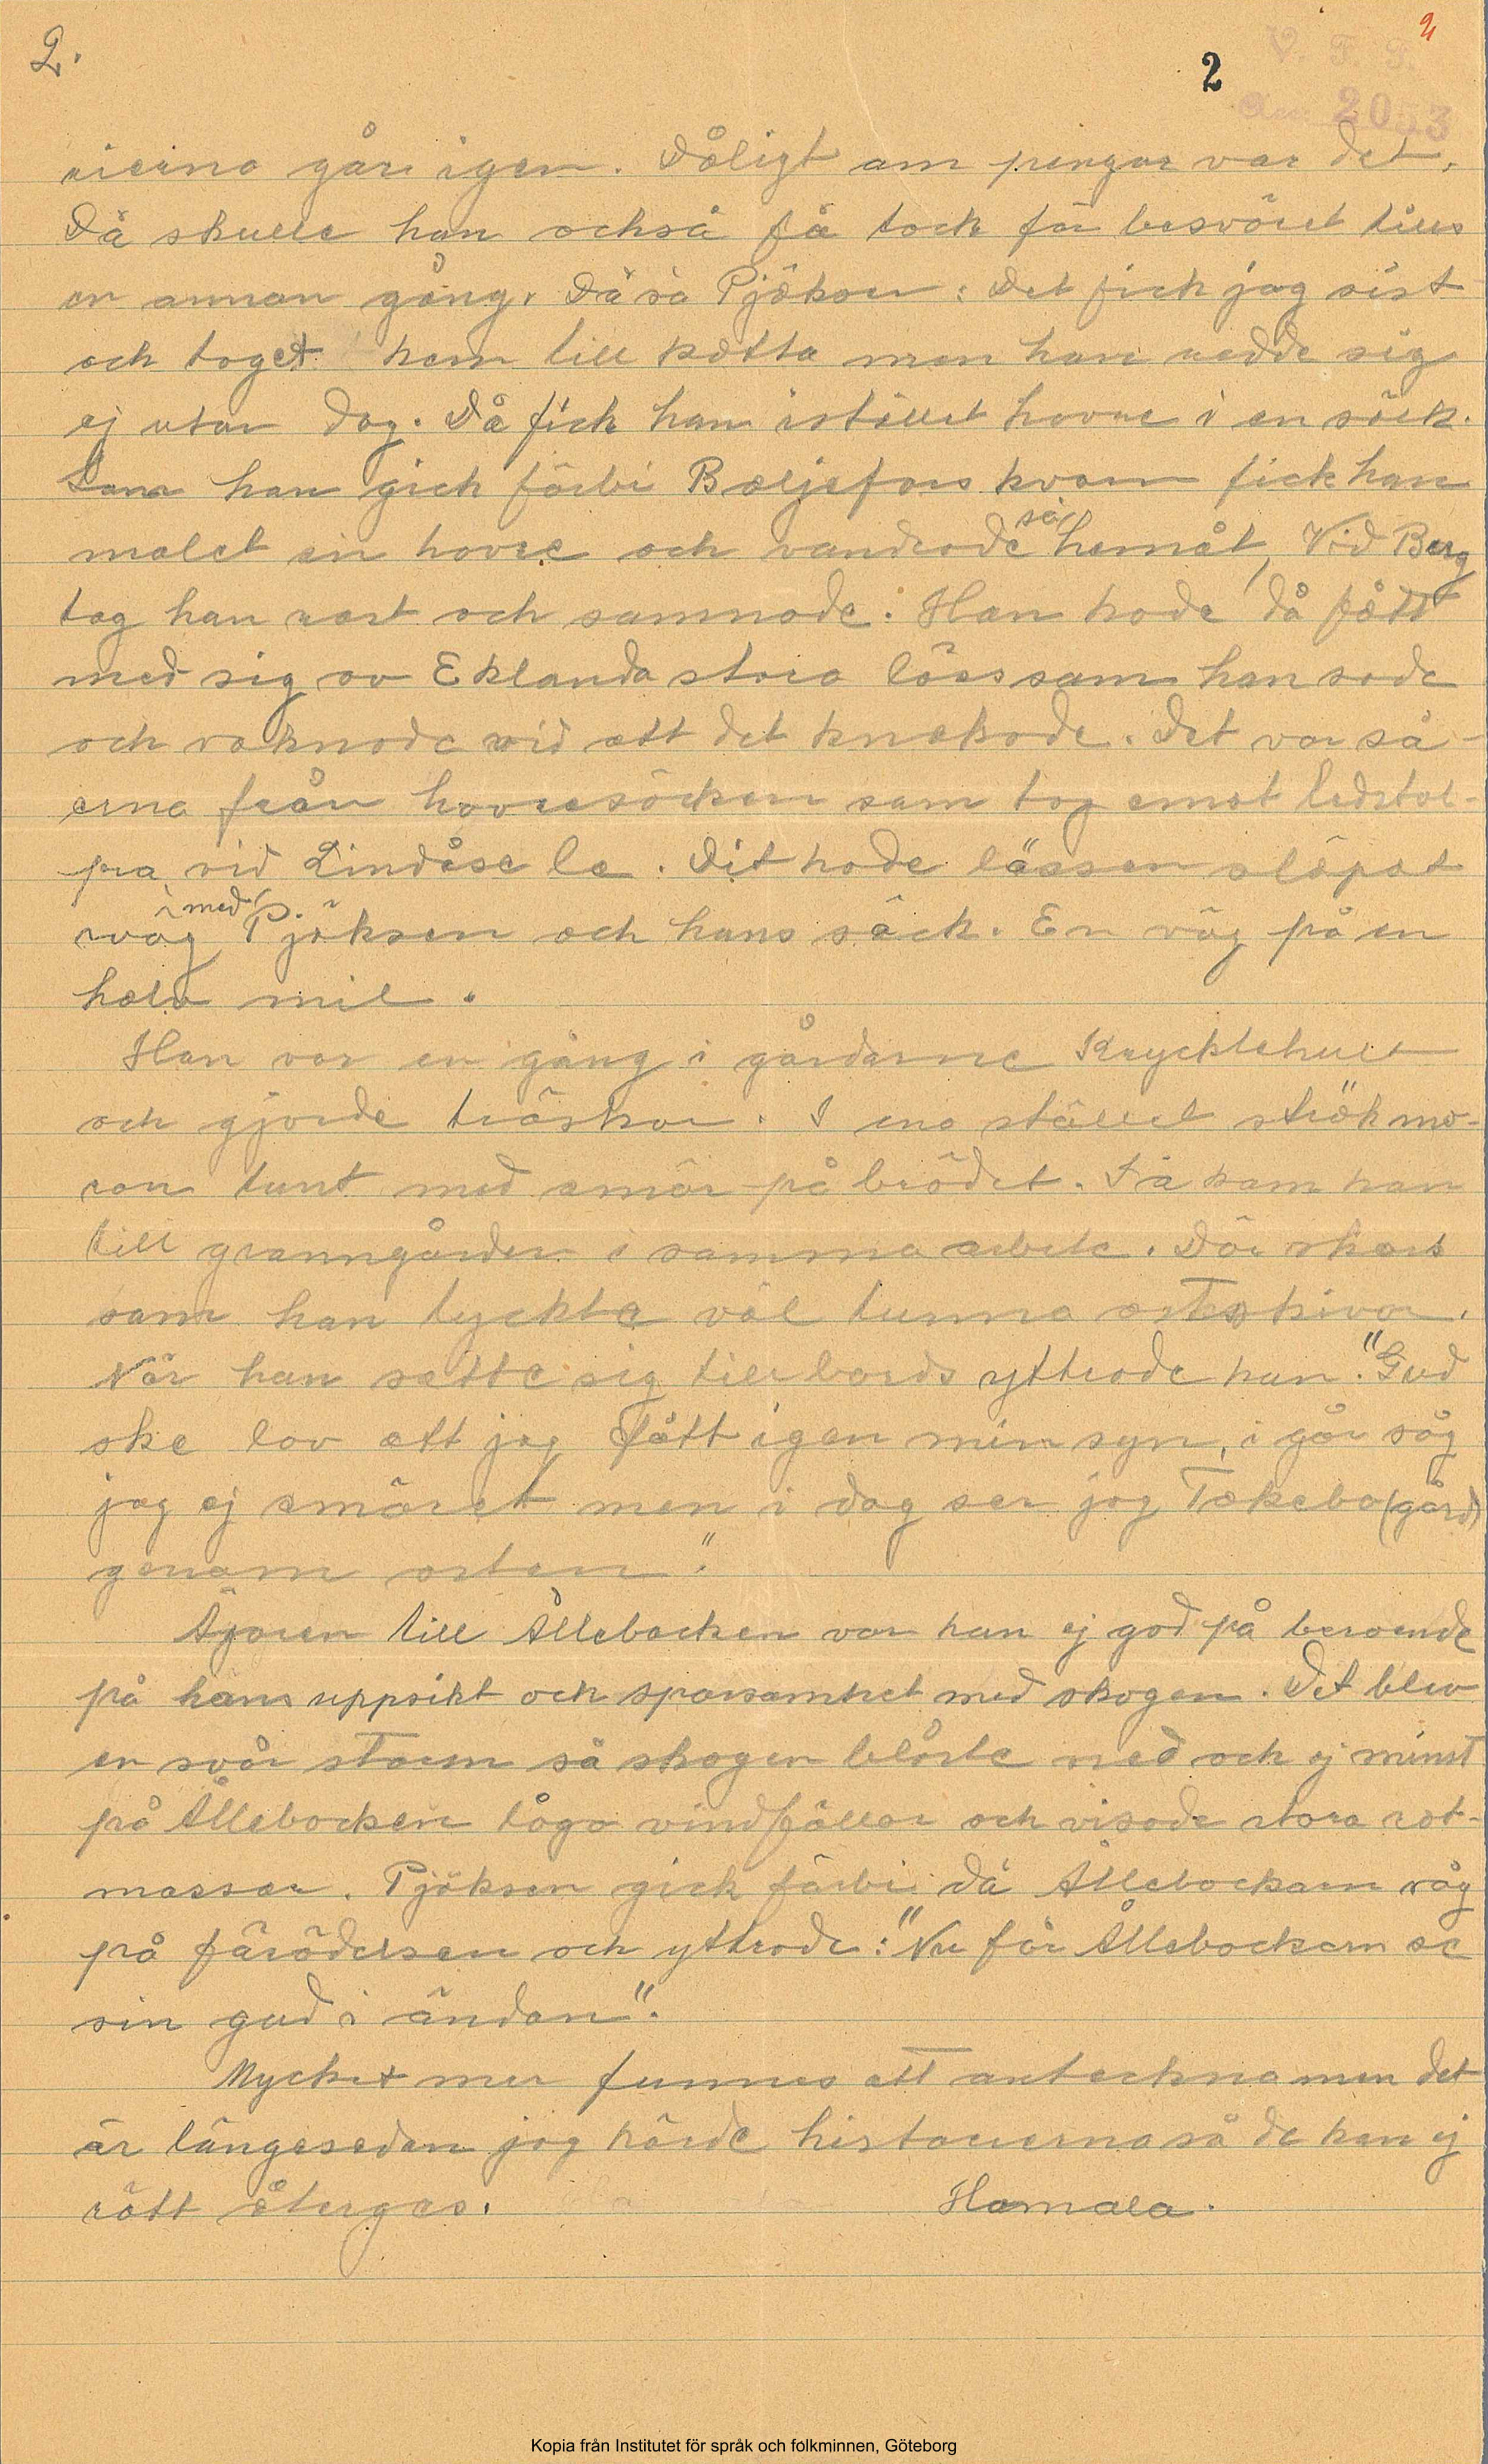 2.
2
V. F. G.
Acc. 2053
går igen. Dåligt om pengar var det.
Då skulle han också få tack för besväret tills
en annan gång. Då sa Pjäksen: Det fick jag sist
och toget hem till katta men hon nedde sig
ej utan dog. Då fick han istället havre i en säck.
Som han gick förbi Bäljefors kvarn fick han
malet sin havre och vandrade så hemåt, Vid Berg
tog han rast och somnade. Han hade då fått
med sig av Eklanda stora löss som han sade
och vaknade vid att det knakade. Det var så-
erna från havresäcken som tog emot ledstol-
pra vid Lindåse le. Dit hade lössen släpat
iväg med Pjäksen och hans säck. En väg på en
halv mil.
Han var en gång i gårdarne Krycklehult
och gjorde träskor. I ena stället strök mo-
ron tunt med smör på brödet. Så kom han
till granngården i samma arbete. Där skars
som han tyckte väl tunna ostskivor.
När han satte sig till bords yttrade han. "Gud
ske lov att jag fått igen min syn, i går såg
jag ej smöret men i dag ser jag Takebo (gård)
genom osten".
Ägaren till Ållebacken var han ej god på beroende
på hans uppsikt och sparsamhet med skogen. Det blev
en svår storm så skogen blåste ned och ej minst
på Ållebacken lågo vindfällor och visade stora rot-
massor. Pjäksen gick förbi då Ållebackarn såg
på förödelsen och yttrade: "Nu får Ållebackarn se
sin gud i ändan".
Mycket mer funnes att anteckna men det
är längesedan jag hörde historierna så de kan ej
rätt återges.
Kopia från Institutet för språk och folkminnen, Göteborg